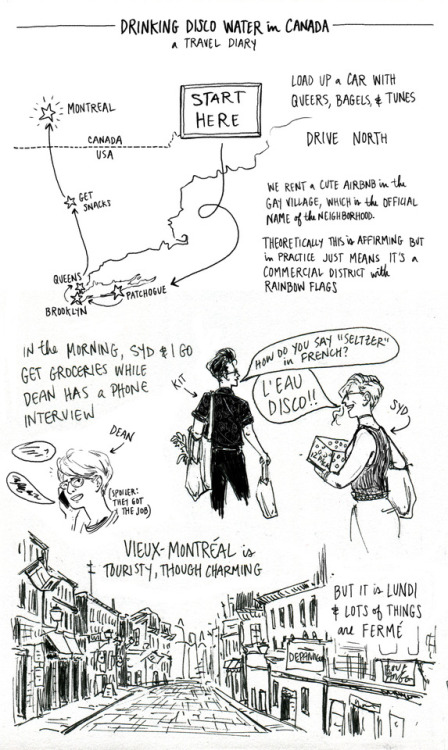 DRINKING DISCO WATER in CANADA
a TRAVEL DIARY
START
HERE
LOAD UP a CAR WITH
QUEERS, BAGELS, & TUNES
DRIVE NORTH
MONTREAL
CANADA
USA
GET
SNACKS
WE RENT a CUTE AIRBNB in the
GAY VILLAGE, WHICH is the OFFICIAL
NAME of the NEIGHBORHOOD.
THEORETICALLY THIS is AFFIRMING BUT
in PRACTICE JUST MEANS IT'S a
COMMERCIAL DISTRICT with
RAINBOW FLAGS
QUEENS
BROOKLYN
PATCHOGUE
IN the MORNING, SYD & I GO
GET GROCERIES WHILE
DEAN HAS a PHONE
INTERVIEW
KIT
HOW DO YOU SAY "SELTZER"
in FRENCH?
L'EAU
DISCO!!
SYD
DEAN
(SPOILER:
THEY GOT
THE JOB)
VIEUX-MONTRÉAL is
TOURISTY, THOUGH CHARMING
BUT IT is LUNDI
& LOTS of THINGS
are FERMÉ